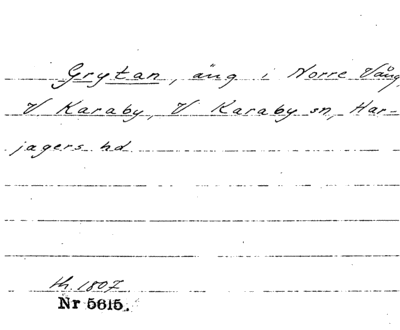 Grytan, äng i Norre Vång,
V Karaby, V Karaby sn, Har-
jagers hd
th. 1807
Nr 5615.